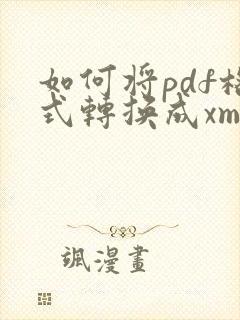 如何将pdf格
式轉換成xm
颯漫畫